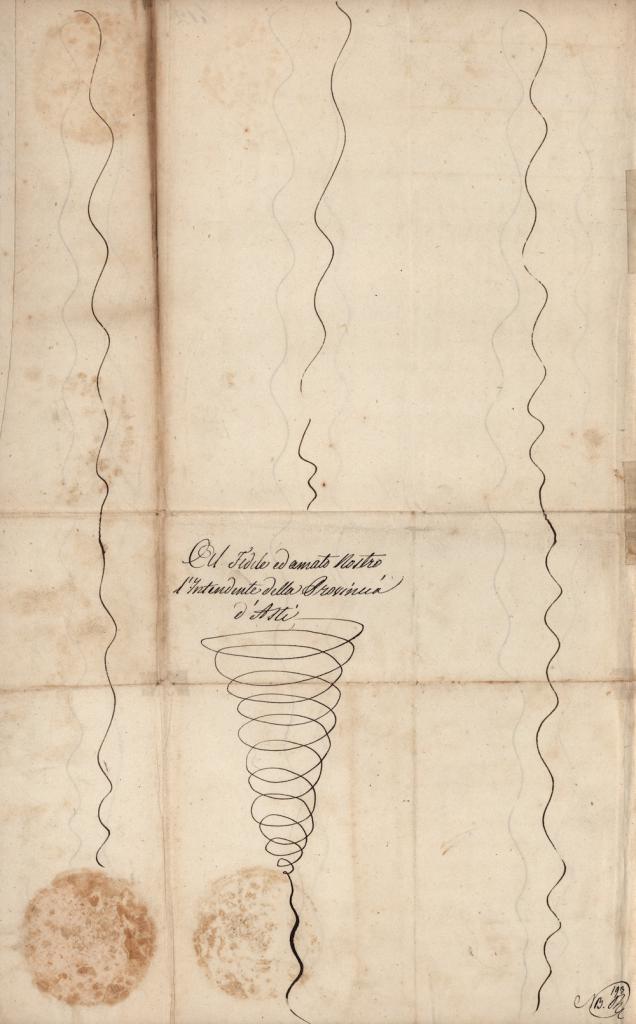 Al Fedele ed amato Nostro
l'Intendente della Provincia
d'Asti